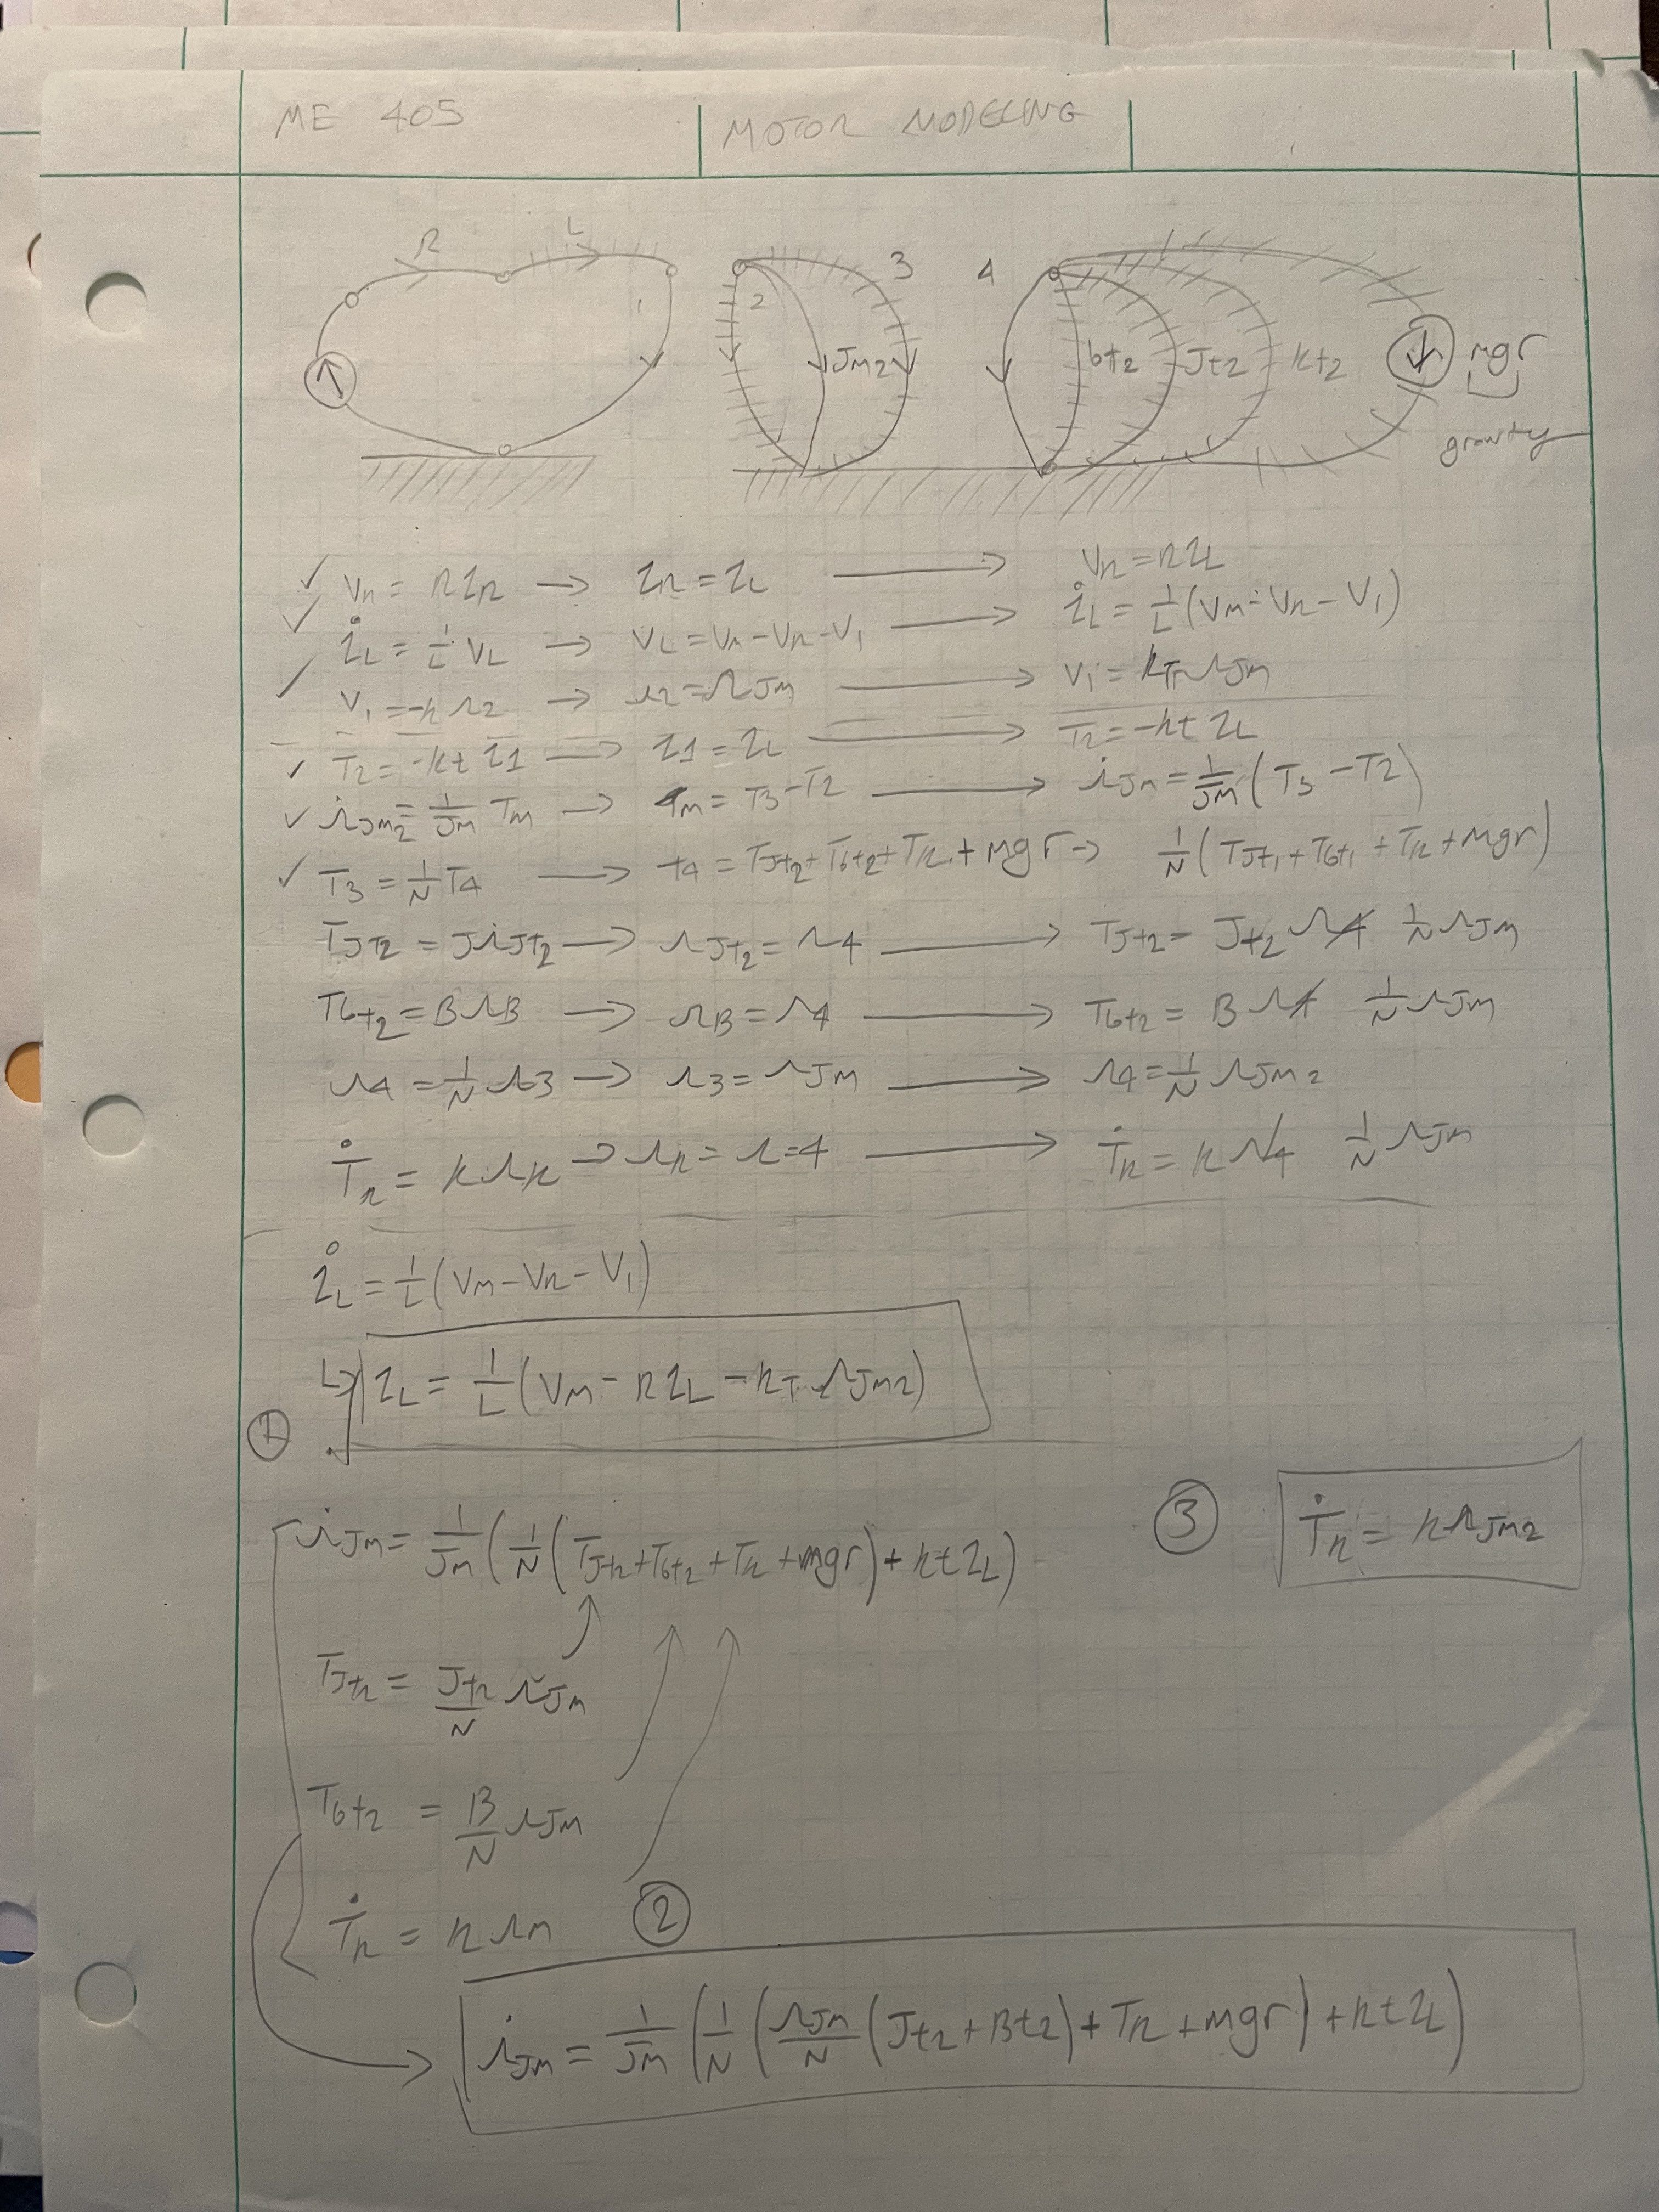 ME 405 MOTOR MODELING
R L 1 2 Jm2 3 4 bt2 Jt2 kt2 mgr
gravity
✓ VR = R IR → IR = IL → VR = R IL
✓ İL = 1/L VL → VL = Vm - VR - V1 → İL = 1/L (Vm - VR - V1)
✓ V1 = -k Ω2 → Ω2 = ΩJm → V1 = kT ΩJm
✓ T2 = -kt I1 → I1 = IL → T2 = -kt IL
✓ Ω̇Jm2 = 1/Jm Tm → Tm = T3 - T2 → Ω̇Jm = 1/Jm (T3 - T2)
✓ T3 = 1/N T4 → T4 = TJt2 + Tbt2 + Tk + mgr → 1/N (TJt1 + Tbt1 + Tk + mgr)
TJt2 = J Ω̇Jt2 → ΩJt2 = Ω4 → TJt2 = Jt2 1/N ΩJm
Tbt2 = B ΩB → ΩB = Ω4 → Tbt2 = B 1/N ΩJm
Ω4 = 1/N Ω3 → Ω3 = ΩJm → Ω4 = 1/N ΩJm2
Ṫk = k Ωk → Ωk = Ω=4 → Ṫk = k 1/N ΩJm
İL = 1/L (Vm - VR - V1)
① ↳ IL = 1/L (Vm - R IL - kT ΩJm2)
Ω̇Jm = 1/Jm (1/N (TJt2 + Tbt2 + Tk + mgr) + kt IL) ③ Ṫk = k ΩJm2
TJt2 = Jt2/N Ω̇Jm
Tbt2 = B/N ΩJm
Ṫk = k Ωm ②
→ Ω̇Jm = 1/Jm (1/N (ΩJm/N (Jt2 + Bt2) + Tk + mgr) + kt IL)